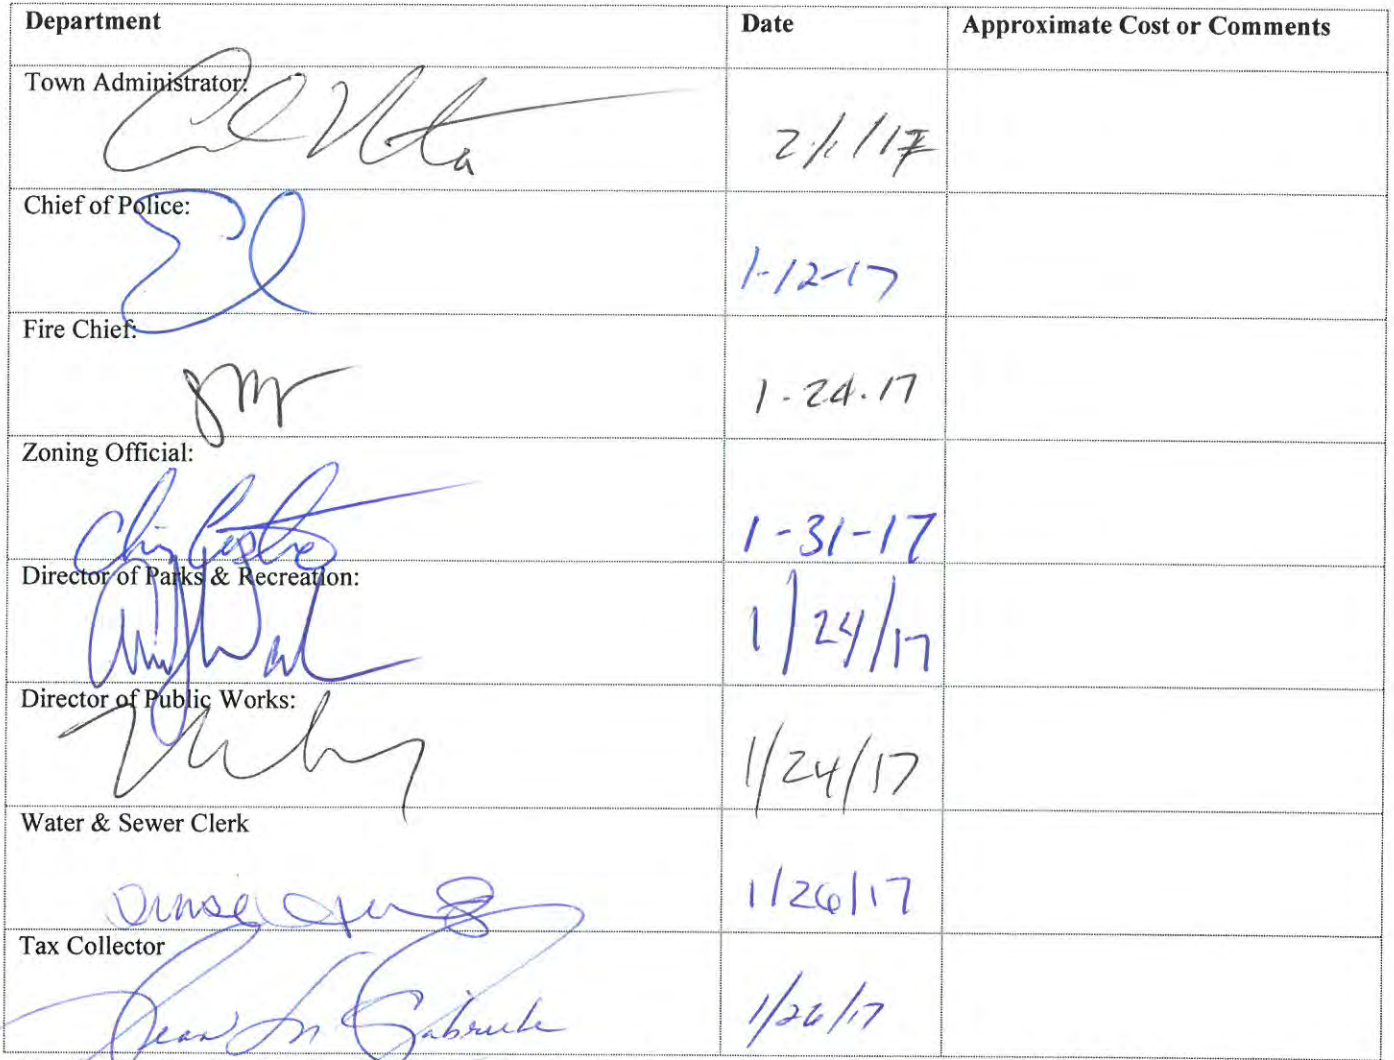 Department Date Approximate Cost or Comments
Town Administrator:
2/1/17
Chief of Police:
1-12-17
Fire Chief:
1-24-17
Zoning Official:
1-31-17
Director of Parks & Recreation:
1/24/17
Director of Public Works:
1/24/17
Water & Sewer Clerk
1/26/17
Tax Collector
1/26/17